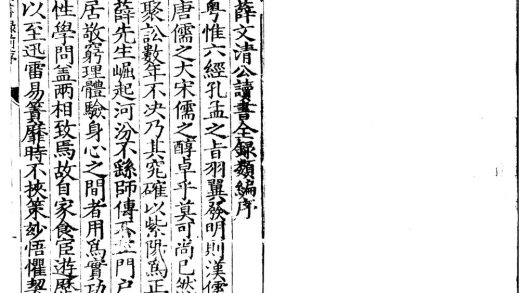 薛文清公讀書全錄類編序
粵惟六經孔孟之旨羽翼發明則漢儒
唐儒之大宋儒之醇卓乎莫可尚已然
聚訟數年不决乃其究確以紫陽為正
薛先生崛起河汾不繇師傳不立門戶
居敬窮理體驗身心之間者用為實功
性學問盖兩相致焉故自家食宦遊歷
以至迅雷易簀靡時不挾策妙悟懼契